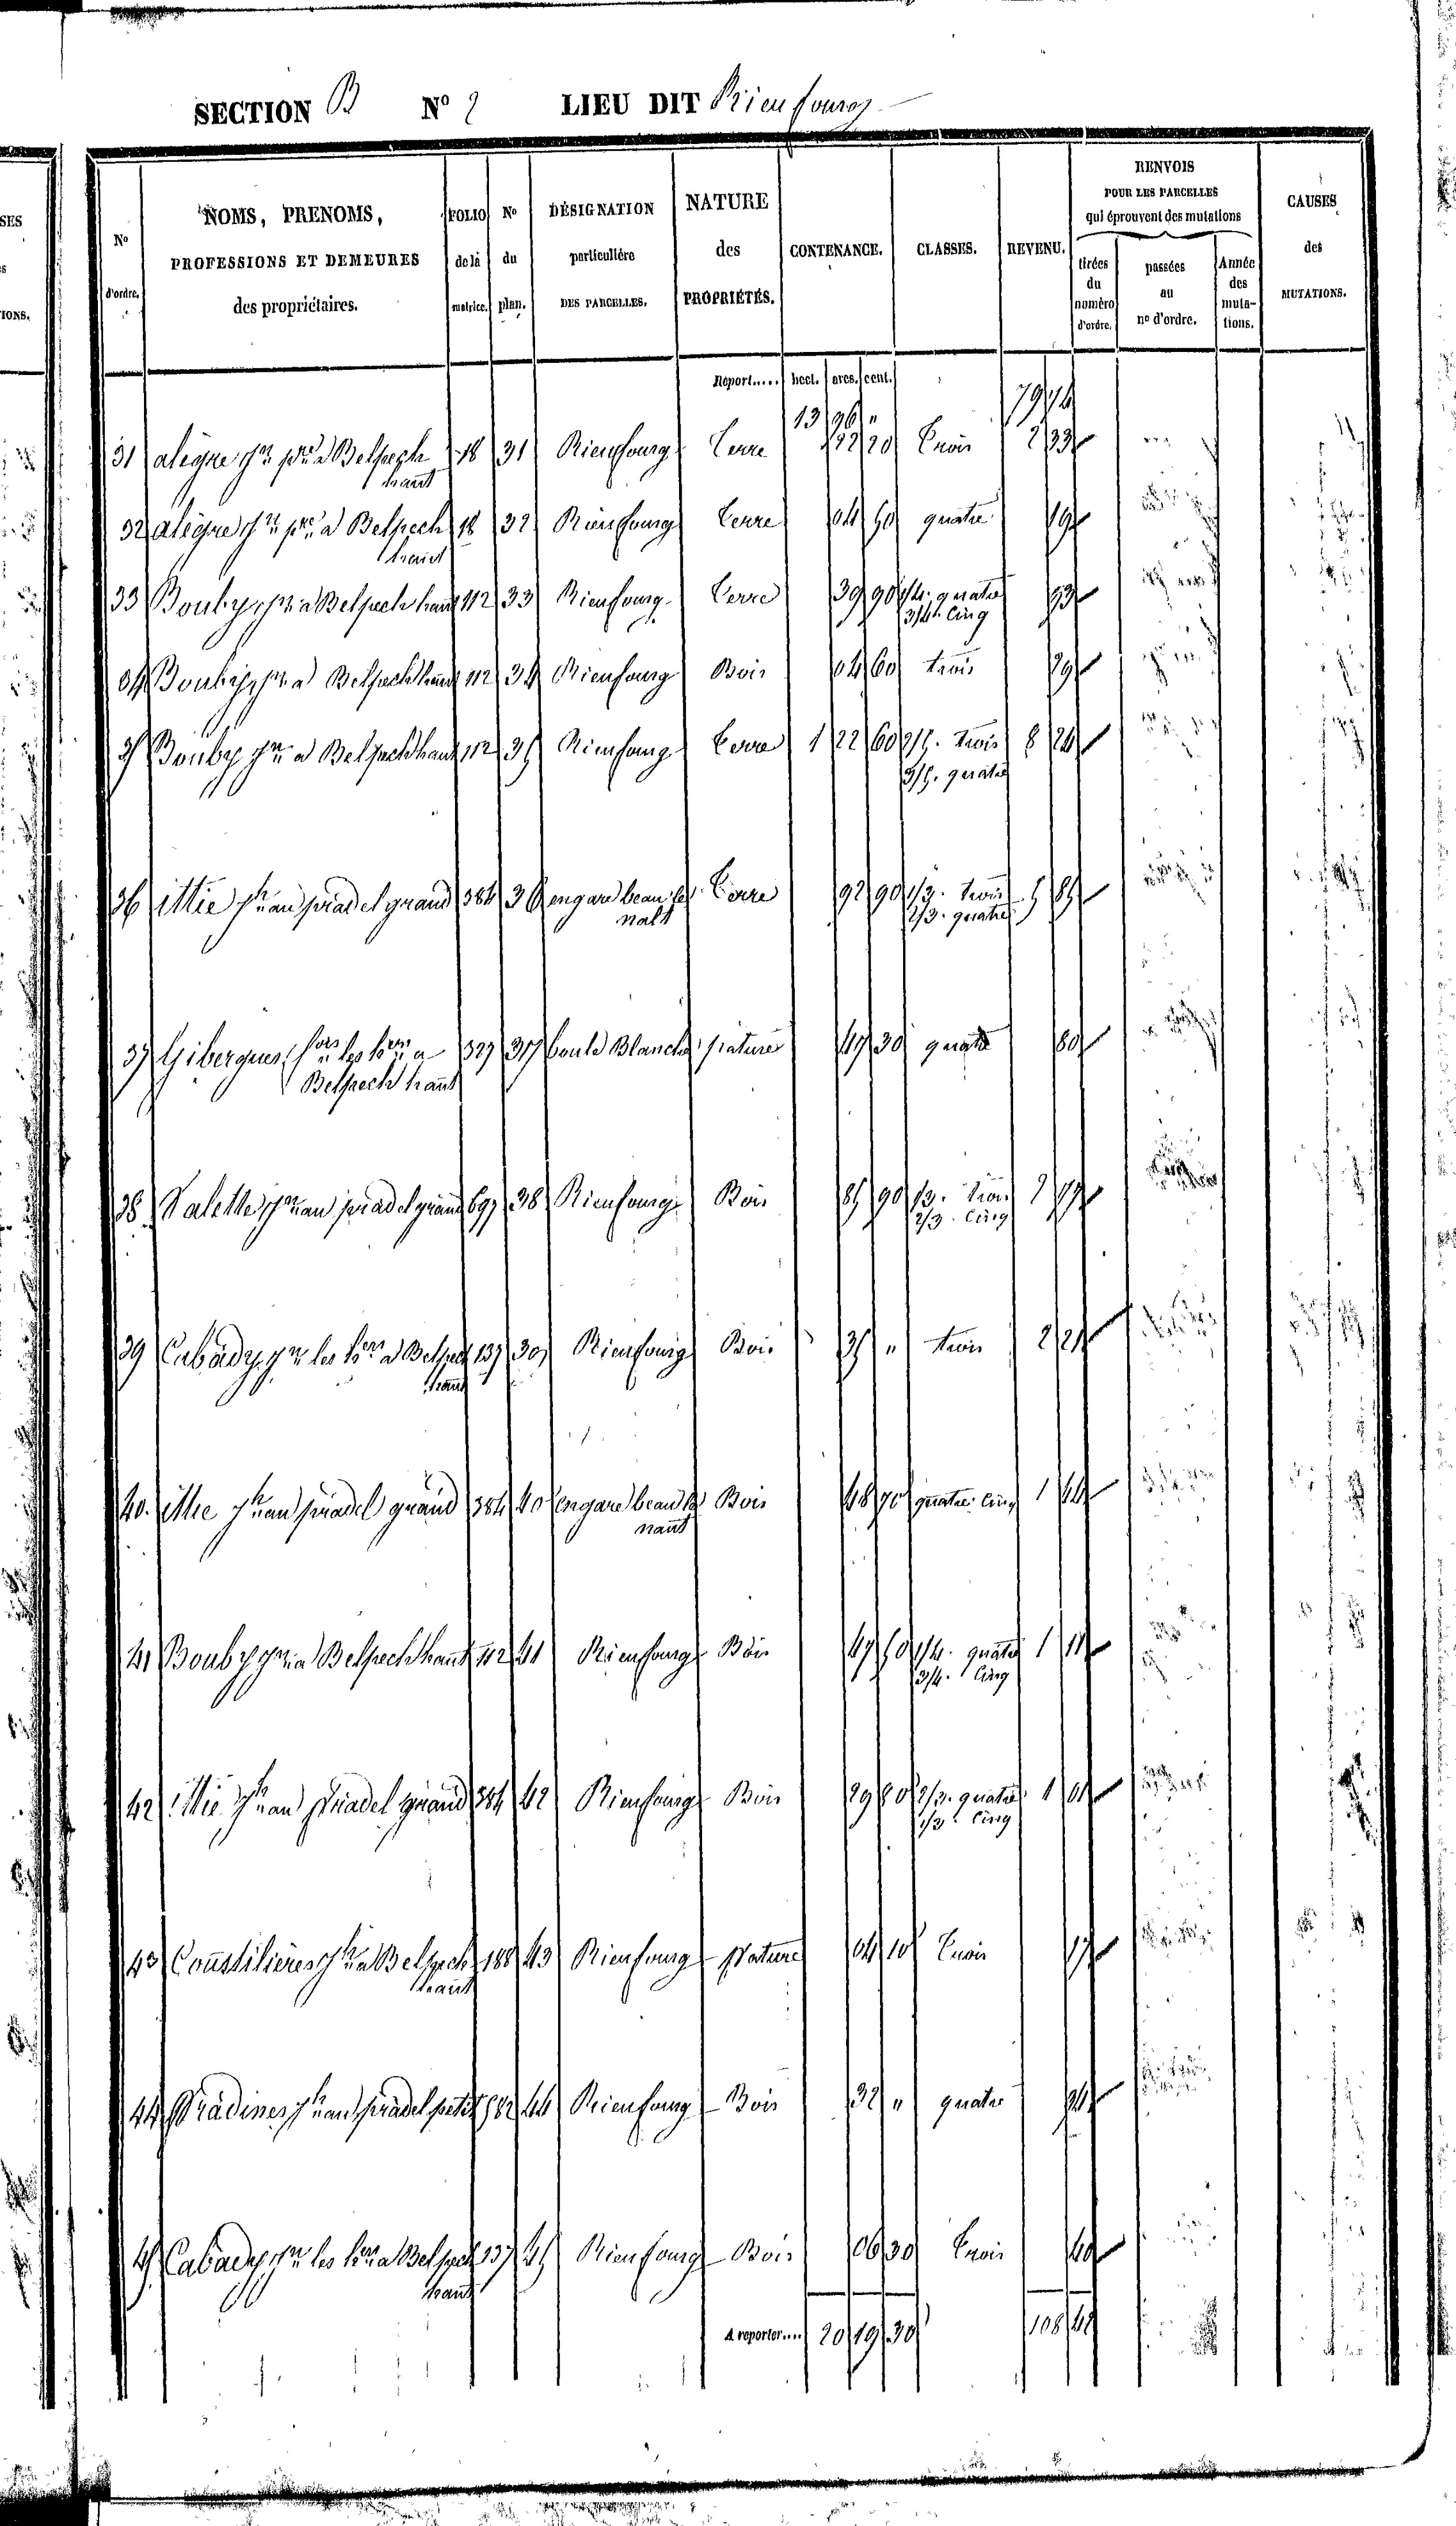 SECTION B N° 2 LIEU DIT Rienfourg
N° d'ordre.
NOMS, PRENOMS, PROFESSIONS ET DEMEURES des propriétaires.
FOLIO de la matrice.
N° du plan.
DÉSIGNATION particulière DES PARCELLES.
NATURE des PROPRIÉTÉS.
CONTENANCE.
CLASSES.
REVENU.
RENVOIS POUR LES PARCELLES qui éprouvent des mutations
tirées du numéro d'ordre.
passées au n° d'ordre.
Année des mutations.
CAUSES des MUTATIONS.
Report..... hect. ares. cent.
13 96 " 79 74
31 alègre Jn pre a Belpech 18 31 Rienfourg Terre 22 20 Trois 2 33
haut
32 alègre Jn pre a Belpech 18 32 Rienfourg Terre 04 50 quatre 19
haut
33 Bouby Jn a Belpech haut 112 33 Rienfourg Terre 39 90 1/4. quatre 93
3/4. Cinq
34 Bouby Jn a Belpech haut 112 34 Rienfourg Bois 04 60 trois 29
35 Bouby Jn a Belpech haut 112 35 Rienfourg Terre 1 22 60 2/5. trois 8 24
3/5. quatre
36 ittié Jh au pradel grand 384 36 Terre 92 90 1/3. trois 5 85
2/3. quatre
37 Gibergues les hers a 327 37 Blanche pature 47 30 quatre 80
Belpech haut
38 Valette Jn au pradel grand 697 38 Rienfourg Bois 85 90 1/3. trois
2/3. Cinq
39 Cabady Jn les hers a Belpech 137 39 Rienfourg Bois 35 " trois 2 21
haut
40. ittié Jh au pradel grand 384 40 Bois 48 70 quatre Cinq 1 44
41 Bouby Jn a Belpech haut 112 41 Rienfourg Bois 47 50 1/4. quatre 1 11
3/4. Cinq
42 ittié Jh au Pradel grand 384 42 Rienfourg Bois 29 80 2/3. quatre 1 01
1/3. Cinq
43 Coustilières Jh a Belpech 188 43 Rienfourg Pature 04 10 Trois 17
haut
44 Pradines Jh au pradel petit 582 44 Rienfourg Bois 32 " quatre
45 Cabady Jn les hers a Belpech 137 45 Rienfourg Bois 06 30 Trois 40
haut
A reporter.... 20 19 30 108 42